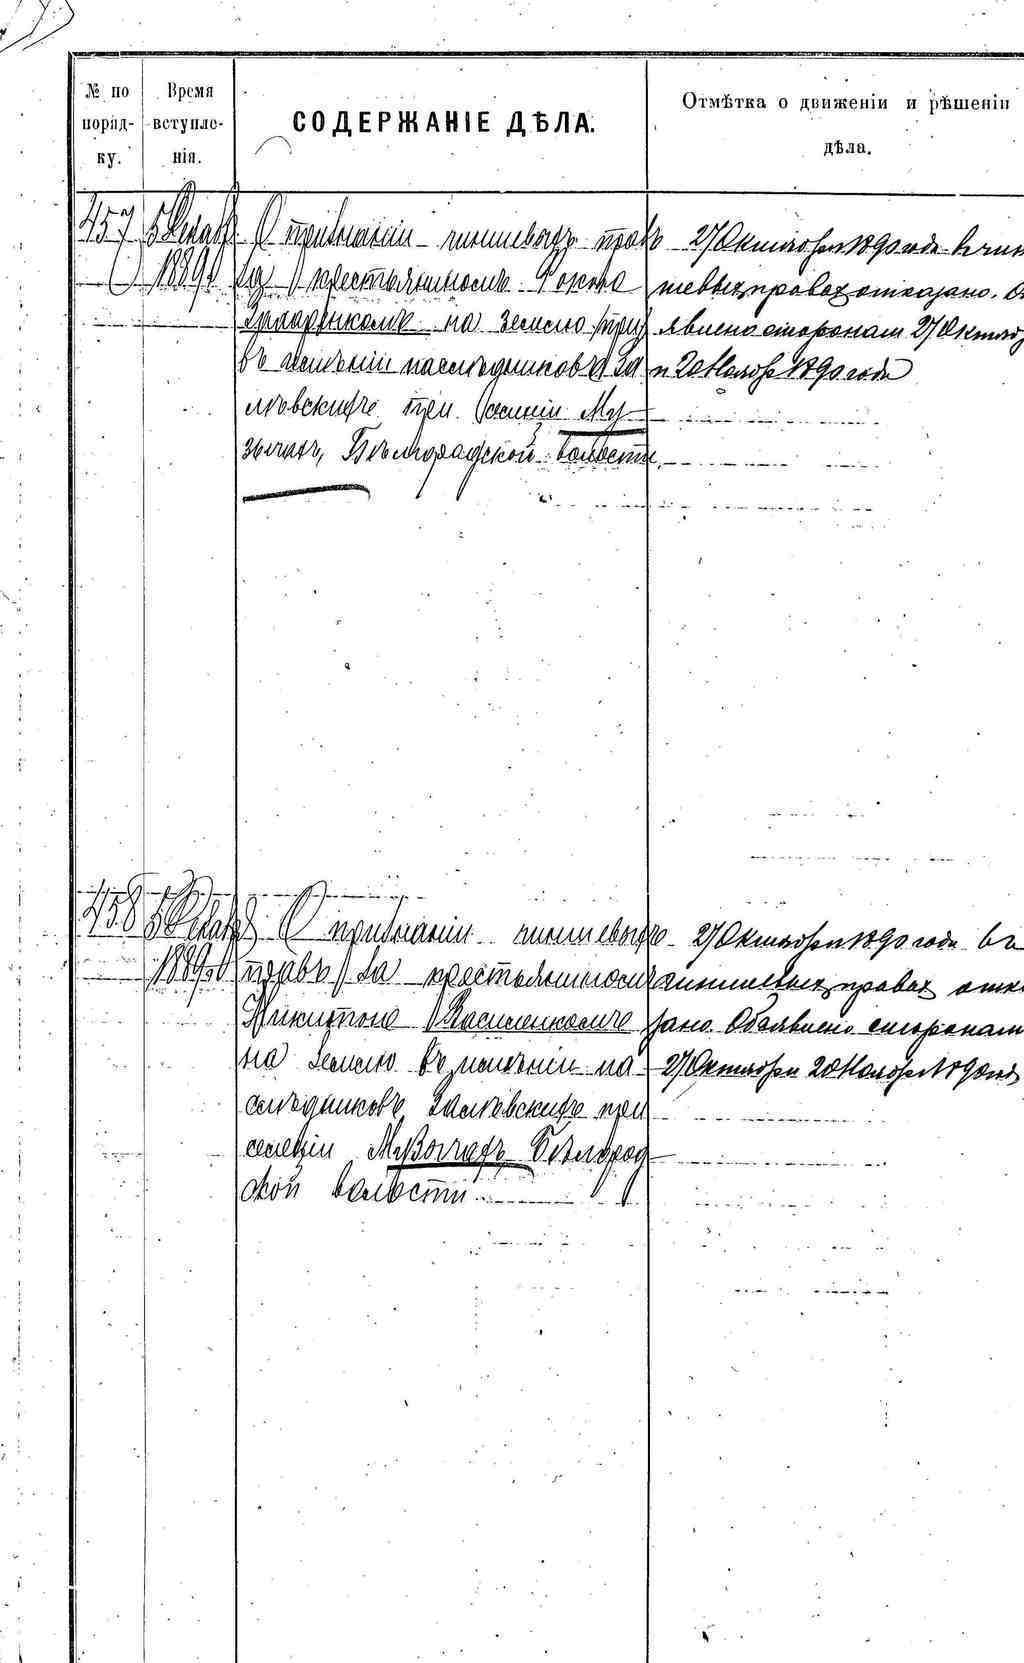 № по поряд- ку.
Время вступле- нія.
СОДЕРЖАНІЕ ДѢЛА.
Отмѣтка о движеніи и рѣшеніи
дѣла.
457
5 Декаб.
1889 г.
О признаніи чиншевыхъ правъ
за крестьяниномъ
на землю при
въ имѣніи наслѣдниковъ За
лѣвскихъ при селеніи Му
зычахъ, Бѣлгородской волости
27 Октября 1890 года в чин
шевых правах отказано. О
явлено сторонам 27 Октяб
и 20 Ноября 1890 года
458
5 Декаб
1889 г.
О признаніи чиншевыхъ
правъ за крестьяниномъ
Никитою Василенкомъ
на землю въ имѣніи на
слѣдниковъ Залѣвскихъ при
селеніи Музычахъ Бѣлгород
ской волости
27 Октября 1890 года въ
чиншевых правах отка
зано. Объявлено сторонам
27 Октября и 20 Ноября 1890 год